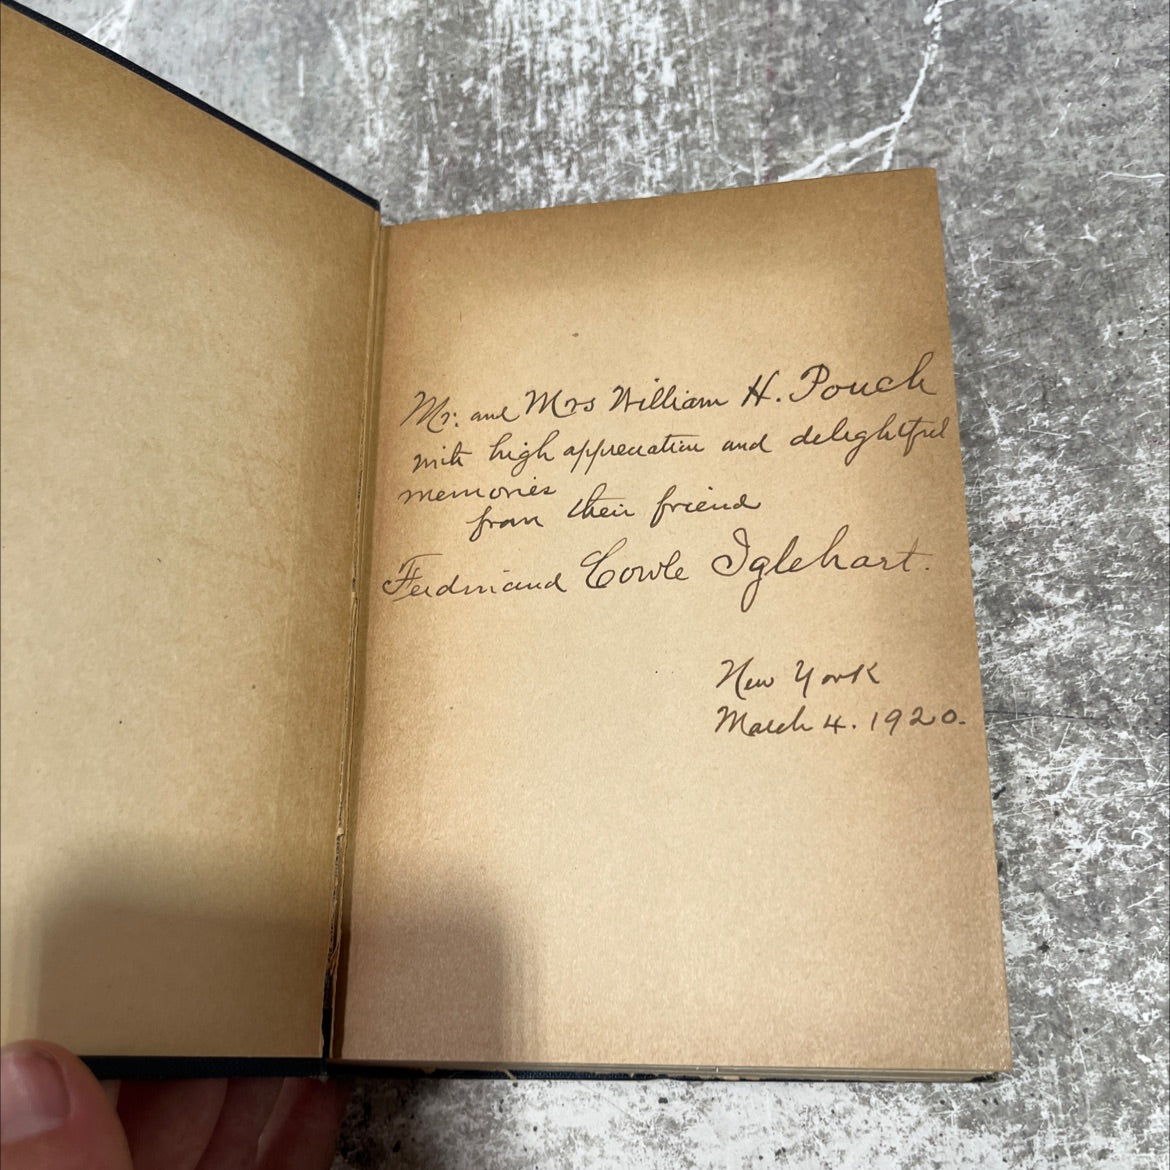 Mr. and Mrs William H. Pouch
with high appreciation and delightful
memories
from their friend
Ferdinand Cowle Iglehart.
New York
March 4. 1920.